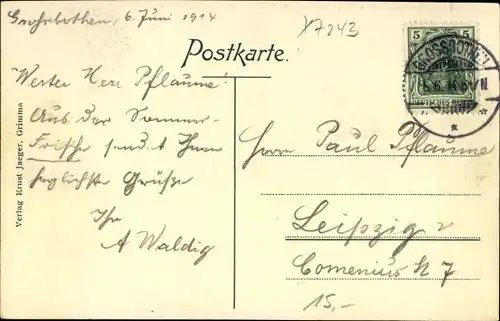 Großbothen, 6. Juni 1914
X7243
Postkarte.
Werter Herr Pflaume!
Aus der Sommer-
Frische sendet Ihnen
herzlichste Grüße
Ihr
A Waldig
Verlag Ernst Jaeger, Grimma
5 5
DEUTSCHES REICH
GROSSBOTHEN
6.6.14.6-7N
Herrn Paul Pflaume
Leipzig
Comenius
7
15,-